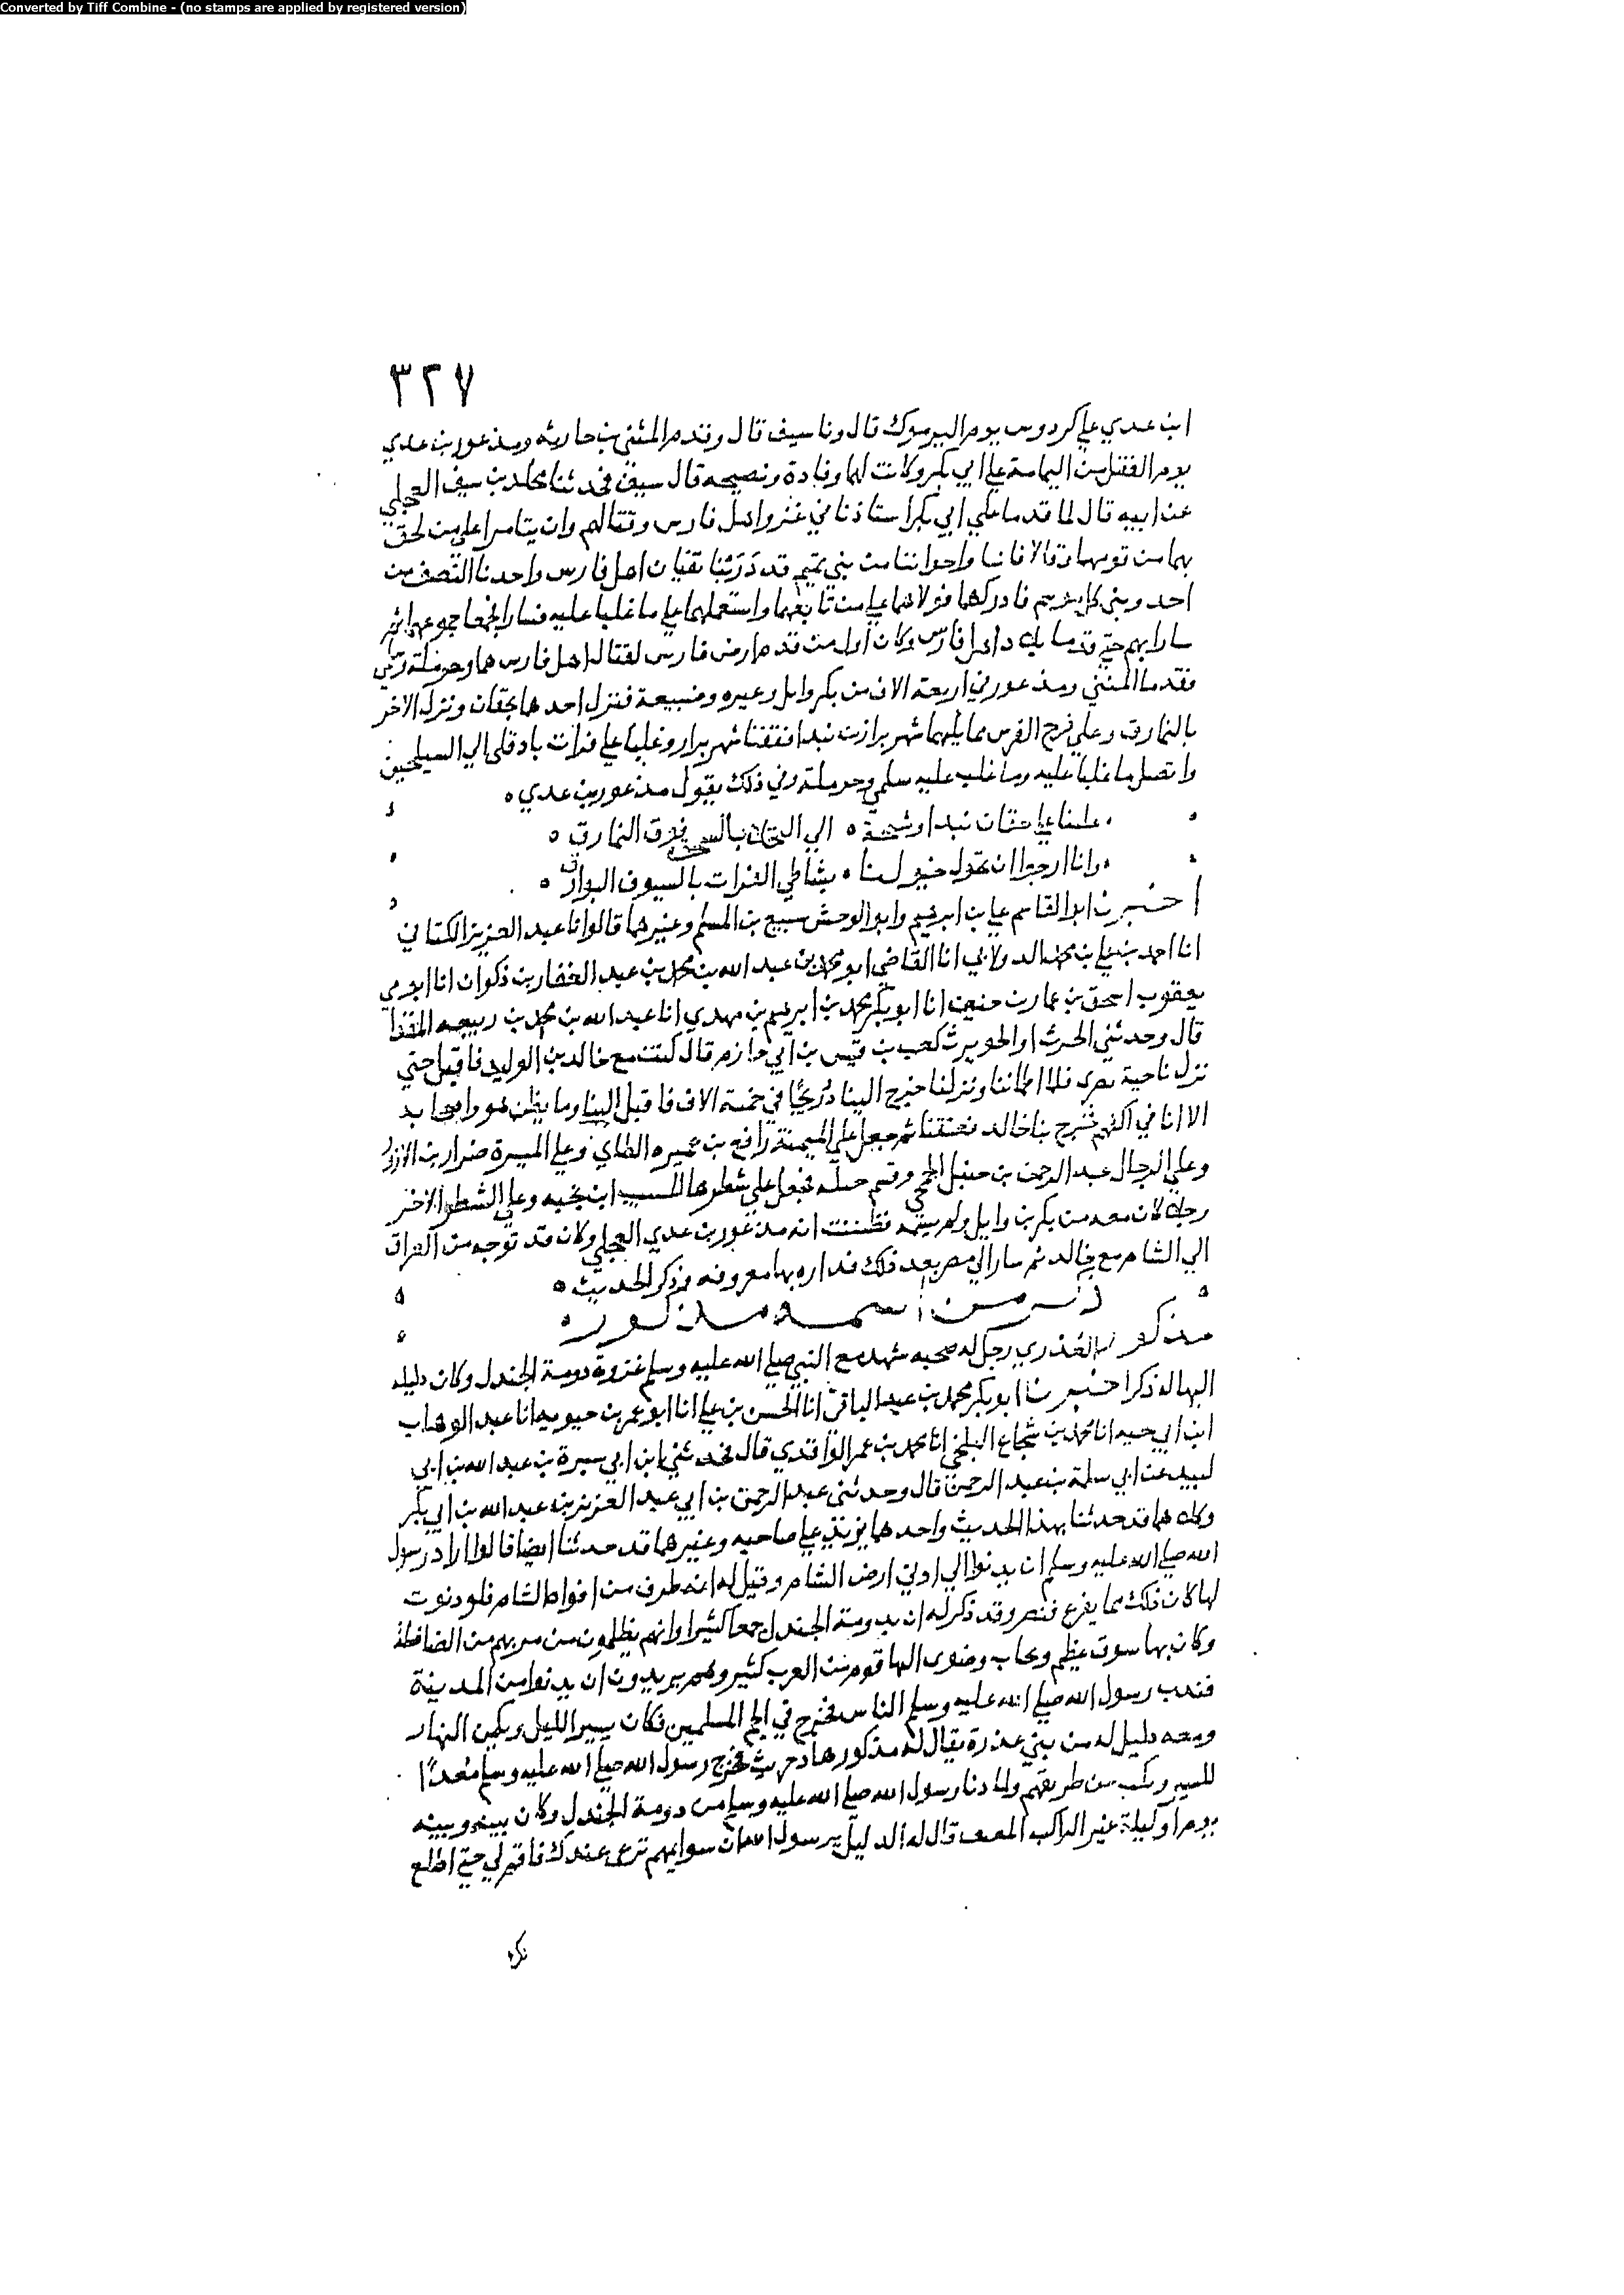 Converted by Tiff Combine - (no stamps are applied by registered version)
٣٢٧
ابن عدي علي كردوس يوم اليرموك قال ونا سيف قال وقدم المثنى بن حارثه ومذعور بن عدي
يوم الفضل من اليمامة علي ابي بكر وكانت لهما وفادة ونصيحه قال سيف فحدثنا مخلد بن سيف العجلي
عن ابيه قال لما قدما علي ابي بكر استاذنا في غزو اهل فارس وقتالهم وان يتامرا علي من لحق
بهما من قومهما وقالا فانا واخواننا من بني تميم قد دَرَبْنَا بقتال اهل فارس واحدنا النصف من
احد وبني كل يوم فادركهما فولاهما علي من تابعهما واستعملهما علي ما غلبا عليه فسارا فجمعا جموعهما ثم
سارا بهم حتي قدما بلاد اهل فارس وكان اول من قدم ارض فارس لقتال اهل فارس هما وحرملة وسلمى
فقدم المثني ومذعور في اربعة الاف من بكر وايل وعنزه وضبيعة فنزل احدهما بخفان ونزل الاخر
بالنمارق وعلي فرج الفرس مما يليهما شهربراز بن بندا فنفضا شهربراز وغلبا علي فرات بادقلى الي السيلحين
واتصل ما غلبا عليه وما غلب عليه سلمى وحرملة وفي ذلك يقول مذعور بن عدي
الي فوق النمارق
وانا ارجوا ان تجول خيولنا بشاطي الفرات بالسيوف البوارق
اخبرنا ابو القاسم علي بن ابرهيم وابو الوحش سبيع بن المسلم وغيرهما قالوا نا عبد العزيز الكتاني
انا احمد بن علي بن محمد الدولابي انا القاضي ابو محمد بن عبد الله بن محمد بن عبد الغفار بن ذكوان انا ابو
يعقوب اسحق بن عمار بن انا ابو بكر محمد بن ابرهيم بن مهدي انا عبد الله بن محمد بن ربيعه القدامي
قال وحدثني الحرث او الحويرث كعب بن قيس بن ابي حازم قال كنت مع خالد بن الوليد فاقبل حتي
نزل ناحية بصرى فلما اطماننا ونزلنا خرج الينا في خمسة الاف فاقبل الينا وما يظن هو واصحابه
الا انا في اكفهم فخرج بنا خالد فصففنا ثم جعل علي الميمنة رافع بن عميره الطاي وعلي الميسرة ضرار بن الازور
وعلي الرجال عبد الرحمن بن حنبل الجمحي وقسم خيله فجعل علي شطرها المسيب ابن نجبه وعلي الشطر الاخر
رجلا كان معه من بكر بن وايل ولم يسمه فظننت انه مذعور بن عدي العجلي وكان قد توجه من العراق
الي الشام مع خالد ثم سار الي مصر بعد ذلك فداره بها معروفه وذكر الحديث
ذكر من اسمه مذكور
مذكور العذري رجل له صحبه شهد مع النبي صلي الله عليه وسلم غزوة دومة الجندل وكان دليله
اليها له ذكر اخبرنا ابو بكر محمد بن عبد الباقي انا الحسن بن علي انا ابو عمر بن حيويه انا عبد الوهاب
ابن ابي حيه انا محمد بن شجاع البلخي انا محمد بن عمر الواقدي قال فحدثني ابن ابي سبرة بن عبد الله بن ابي
لبيد عن ابي سلمة بن عبد الرحمن قال وحدثني عبد الرحمن بن ابي عبد العزيز بن عبد الله بن ابي بكر
وكلاهما قد حدثنا بهذا الحديث واحدهما يزيد علي صاحبه وغيرهما قد حدثنا ايضا قالوا اراد رسول
الله صلي الله عليه وسلم ان يدنوا الي ادني ارض الشام وقيل له انه طرف من افواه الشام فلو دنوت
لها كان ذلك مما يفزع قيصر وقد ذكر له ان بدومة الجندل جمعا كثيرا وانهم يظلمون من مر بهم من الضافطة
وكان بها سوق عظيم وتجار وضوى اليها قوم من العرب كثير وهم يريدون ان يدنوا من المدينة
فندب رسول الله صلي الله عليه وسلم الناس فخرج في الف المسلمين فكان يسير الليل ويكمن النهار
ومعه دليل له من بني عذرة يقال له مذكور هاد خريت فخرج رسول الله صلي الله عليه وسلم مُغدًّا
للسير ونكب عن طريقهم ولما دنا رسول الله صلي الله عليه وسلم من دومة الجندل وكان بينه وبينه
يوم او ليلة غير الراكب المعنف قال له الدليل يرسول الله ان سوايمهم ترعى عندك فاقم لي حتي اطلع